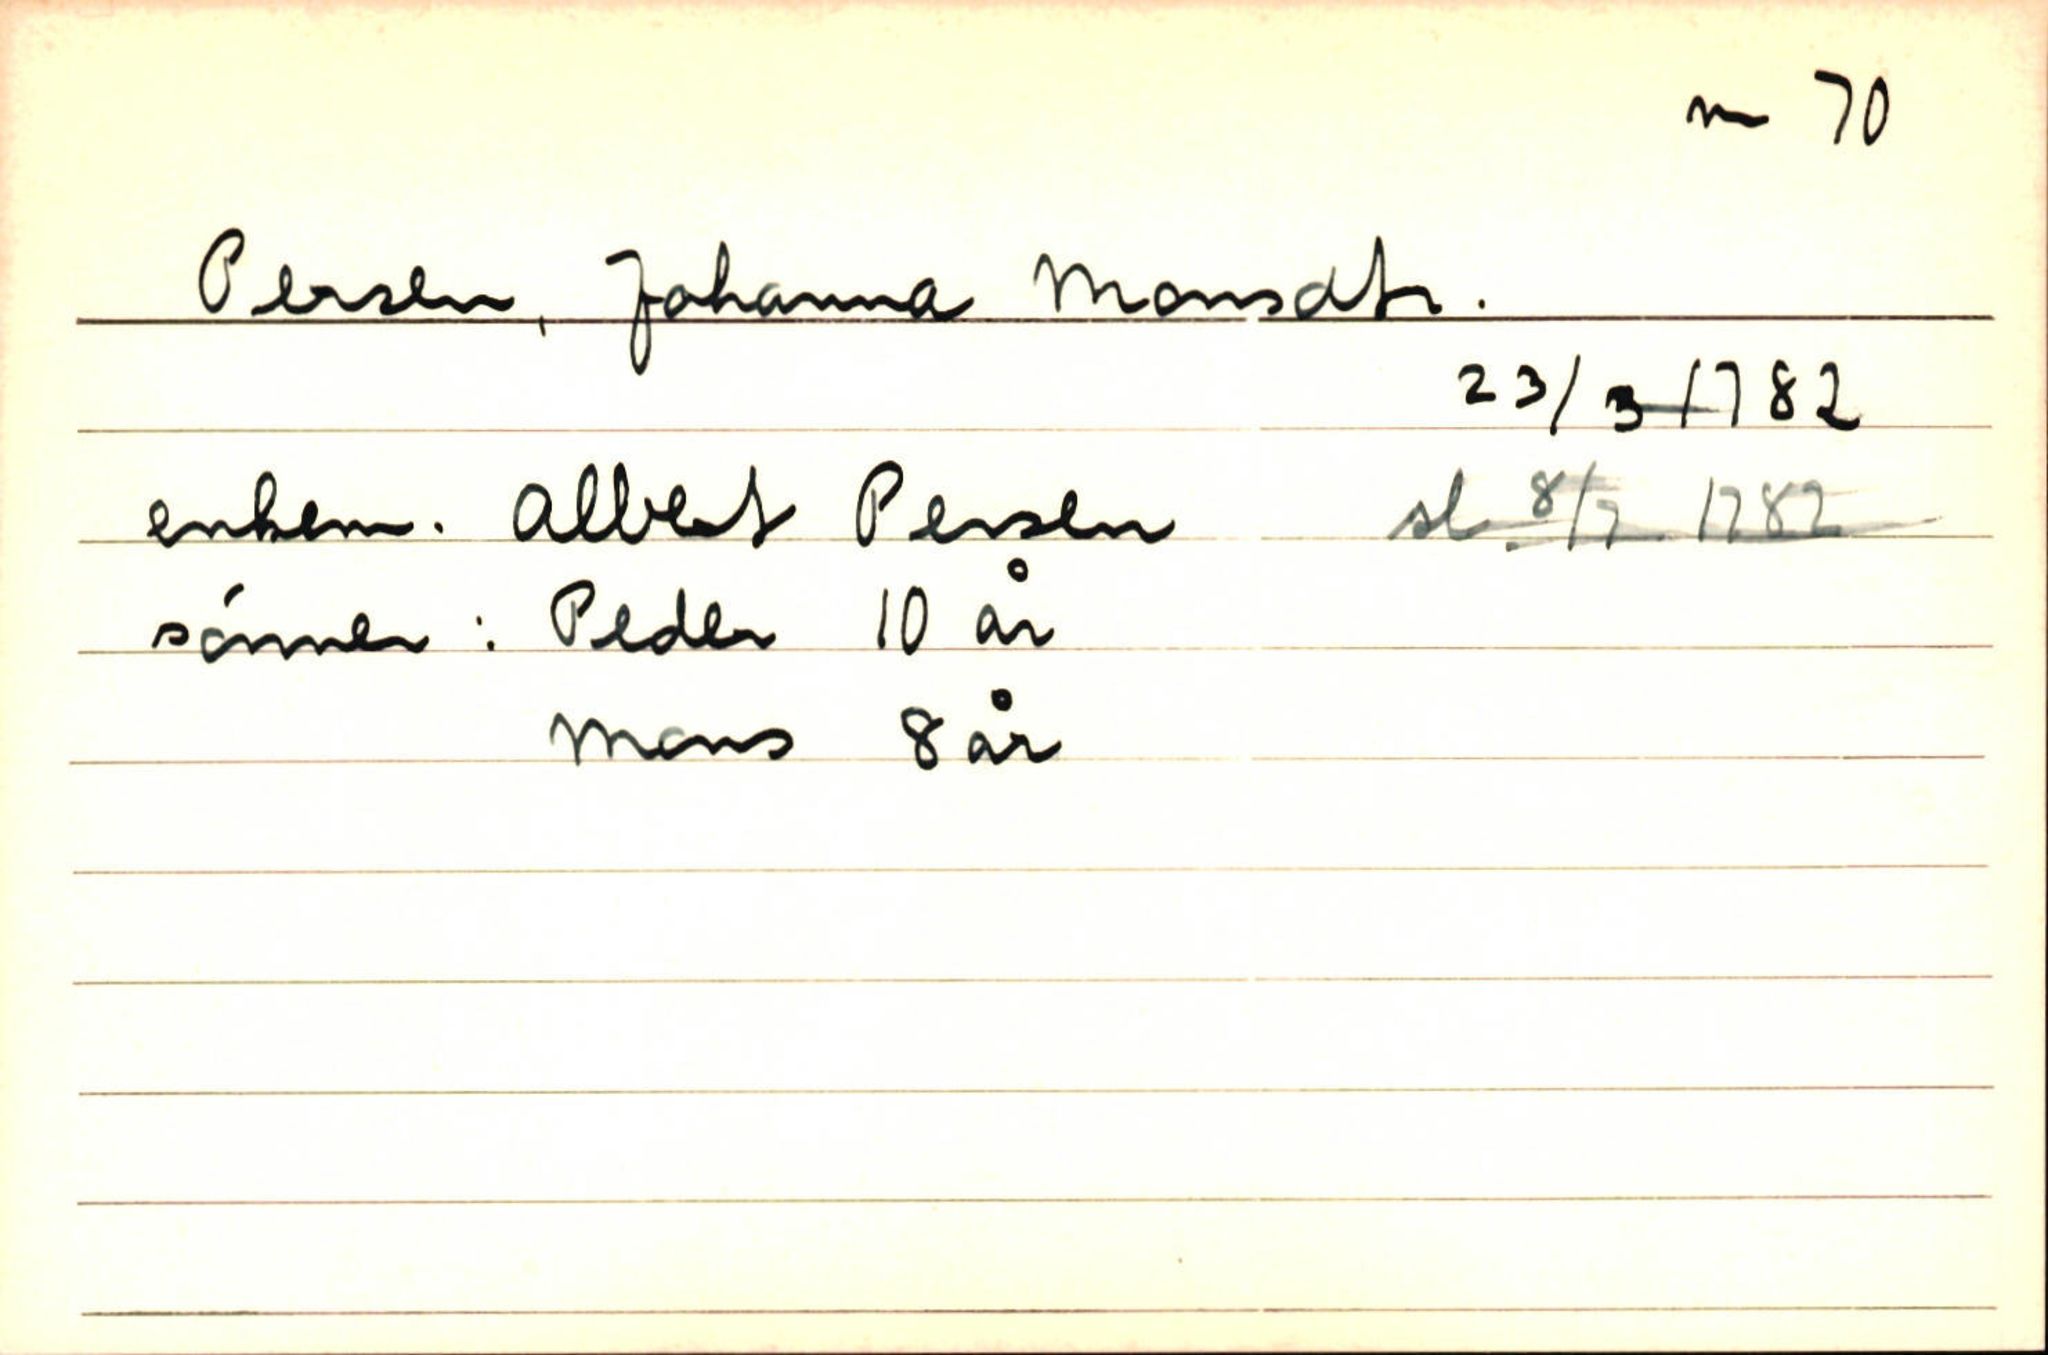 m 70
Persen, Johanna Monsdtr.
23/3 1782
enkem. Albert Persen sl 8/7 1782
sónner: Peder 10 år
Mons 8 år